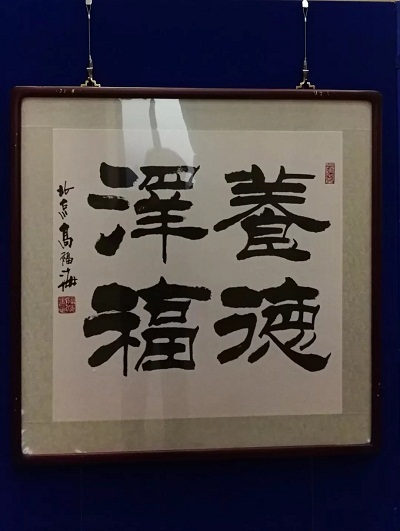 養德
澤福
北京馬福海